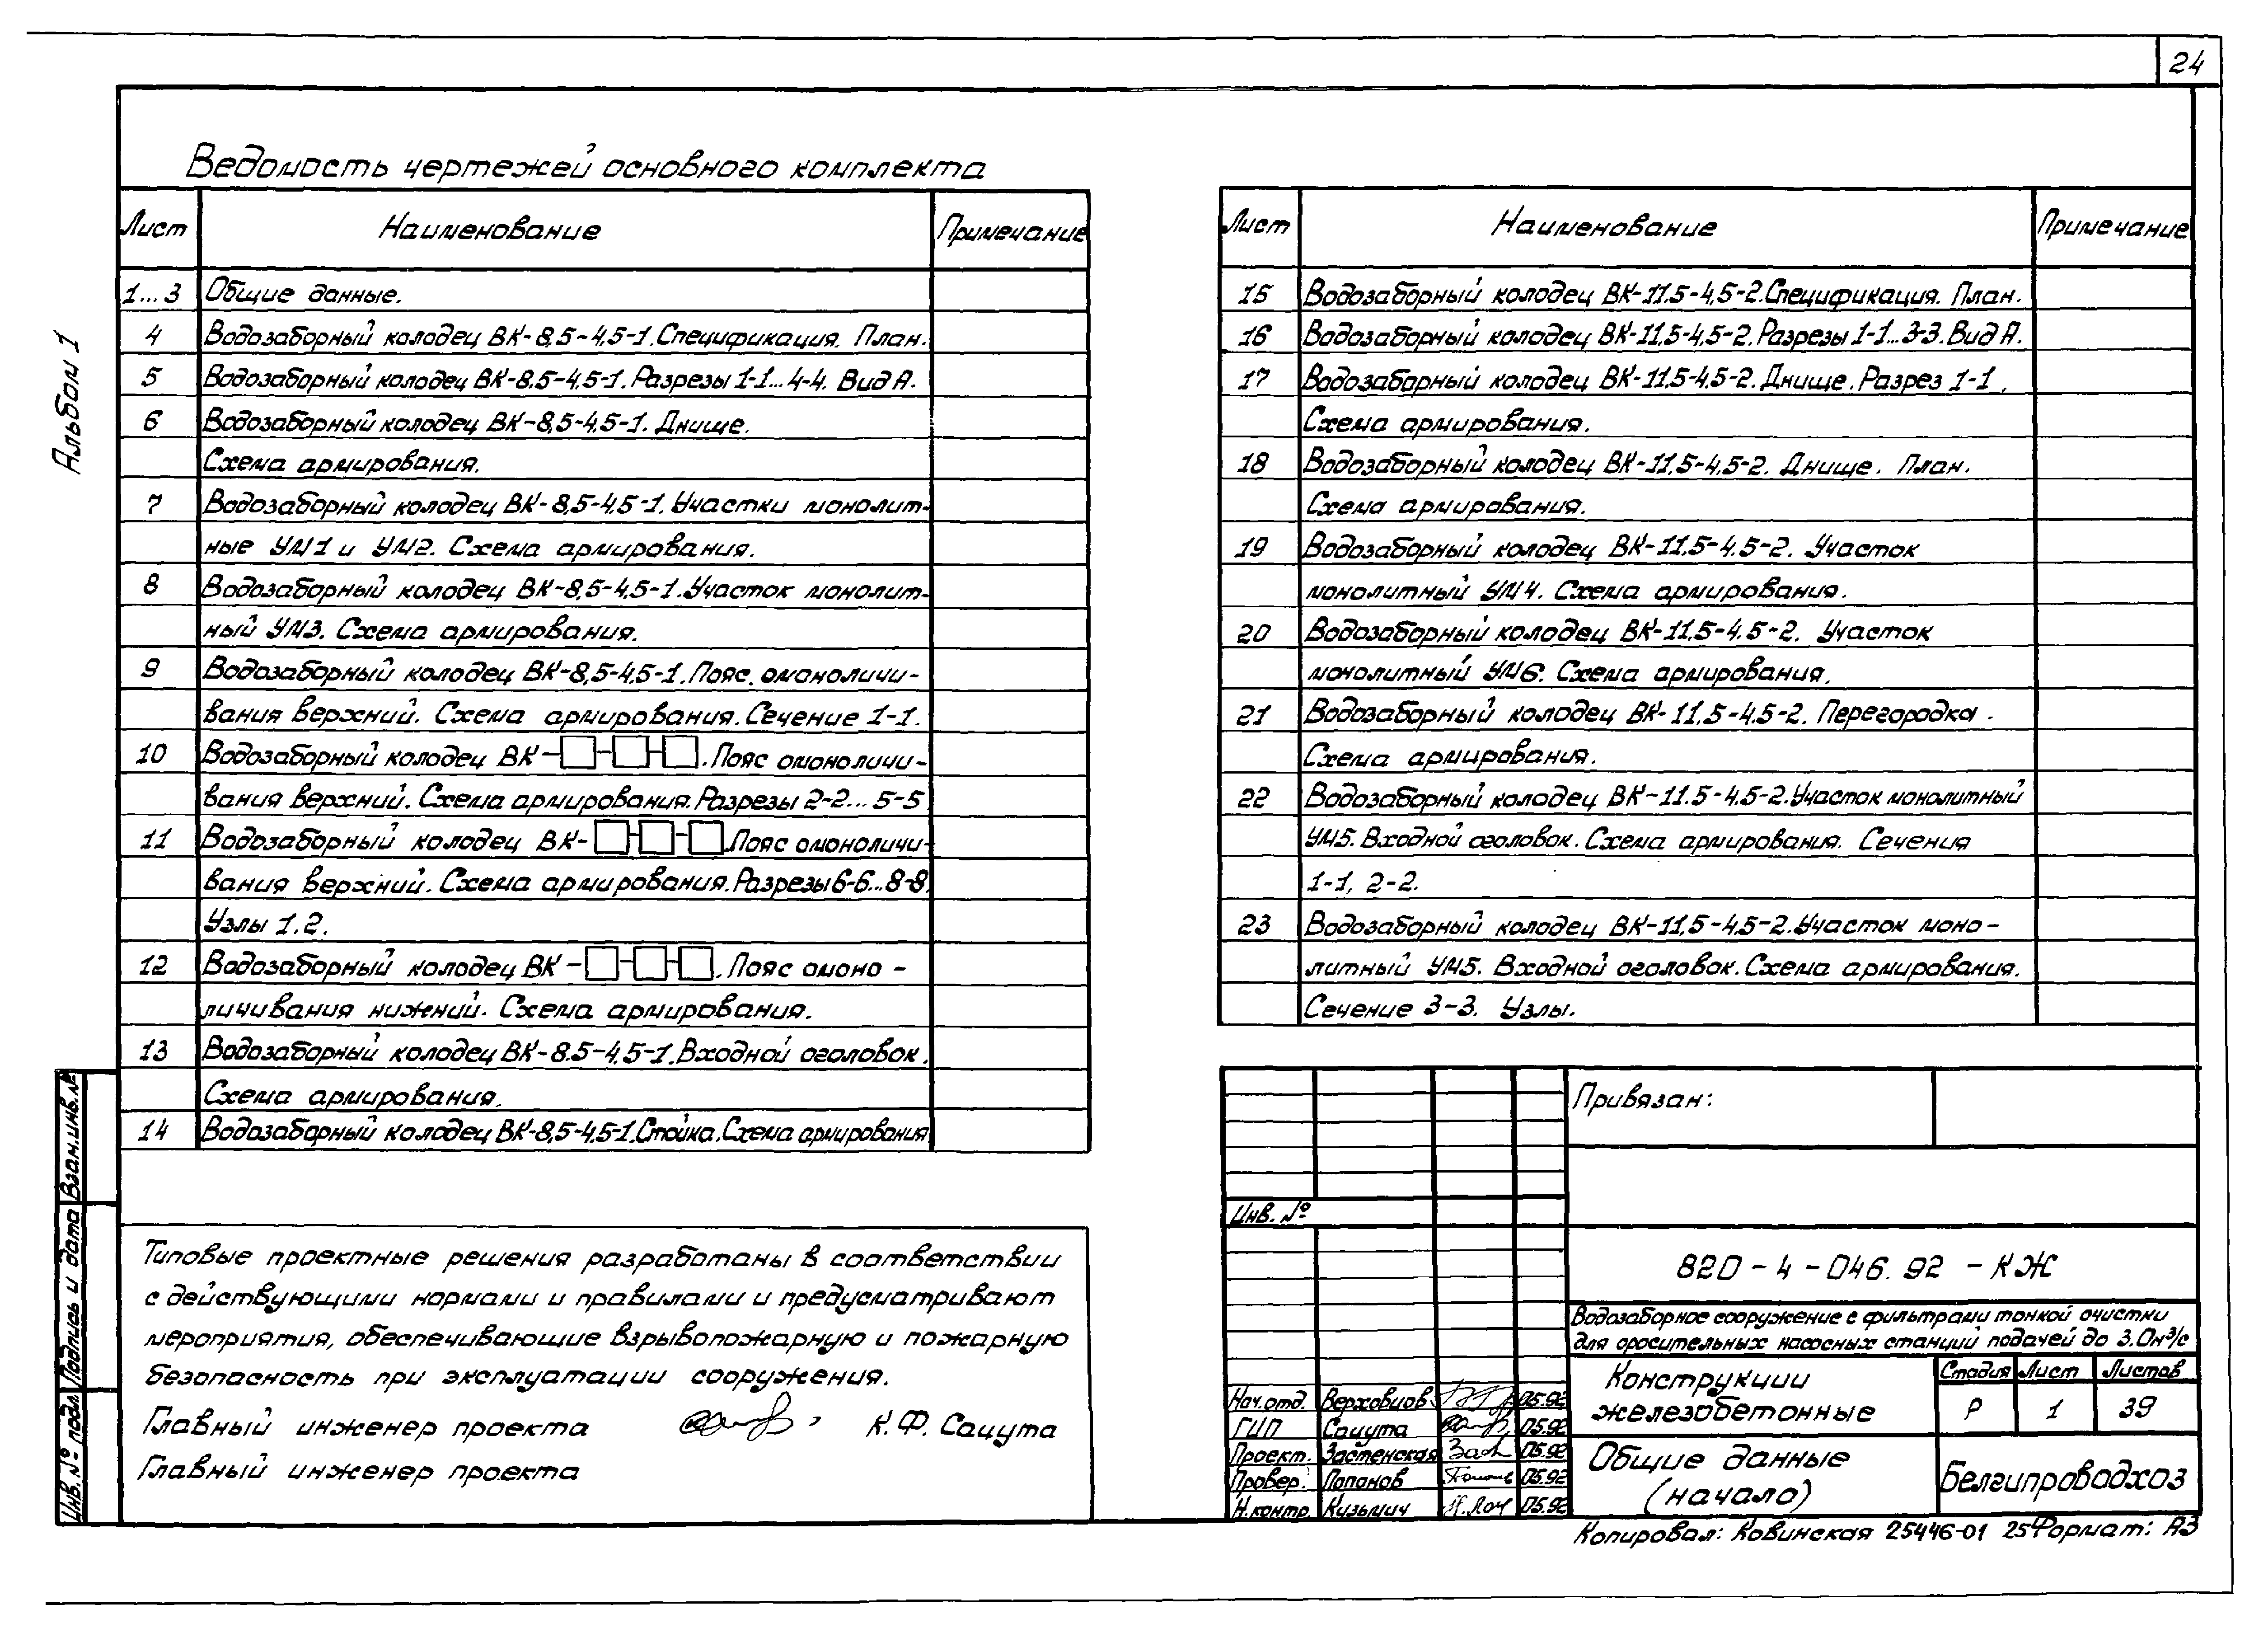 24
Альбом 1
Ведомость чертежей основного комплекта
Лист Наименование Примечание
1...3 Общие данные.
4 Водозаборный колодец ВК-8,5-4,5-1. Спецификация. План.
5 Водозаборный колодец ВК-8,5-4,5-1. Разрезы 1-1...4-4. Вид А.
6 Водозаборный колодец ВК-8,5-4,5-1. Днище.
Схема армирования.
7 Водозаборный колодец ВК-8,5-4,5-1. Участки монолит-
ные УМ1 и УМ2. Схема армирования.
8 Водозаборный колодец ВК-8,5-4,5-1. Участок монолит-
ный УМ3. Схема армирования.
9 Водозаборный колодец ВК-8,5-4,5-1. Пояс. омоноличи-
вания верхний. Схема армирования. Сечение 1-1.
10 Водозаборный колодец ВК-□-□-□. Пояс омоноличи-
вания верхний. Схема армирования. Разрезы 2-2...5-5
11 Водозаборный колодец ВК-□-□-□. Пояс омоноличи-
вания верхний. Схема армирования. Разрезы 6-6...8-8.
Узлы 1.2.
12 Водозаборный колодец ВК-□-□-□. Пояс омоно-
личивания нижний. Схема армирования.
13 Водозаборный колодец ВК-8.5-4,5-1. Входной оголовок.
Схема армирования.
14 Водозаборный колодец ВК-8,5-4,5-1. Стойка. Схема армирования
Лист Наименование Примечание
15 Водозаборный колодец ВК-11,5-4,5-2. Спецификация. План.
16 Водозаборный колодец ВК-11,5-4,5-2. Разрезы 1-1...3-3. Вид А.
17 Водозаборный колодец ВК-11,5-4,5-2. Днище. Разрез 1-1.
Схема армирования.
18 Водозаборный колодец ВК-11,5-4,5-2. Днище. План.
Схема армирования.
19 Водозаборный колодец ВК-11,5-4,5-2. Участок
монолитный УМ4. Схема армирования.
20 Водозаборный колодец ВК-11,5-4,5-2. Участок
монолитный УМ6. Схема армирования.
21 Водозаборный колодец ВК-11,5-4,5-2. Перегородка.
Схема армирования.
22 Водозаборный колодец ВК-11.5-4,5-2. Участок монолитный
УМ5. Входной оголовок. Схема армирования. Сечения
1-1, 2-2.
23 Водозаборный колодец ВК-11,5-4,5-2. Участок моно-
литный УМ5. Входной оголовок. Схема армирования.
Сечение 3-3. Узлы.
Типовые проектные решения разработаны в соответствии
с действующими нормами и правилами и предусматривают
мероприятия, обеспечивающие взрывопожарную и пожарную
безопасность при эксплуатации сооружения.
Главный инженер проекта К.Ф. Сацута
Главный инженер проекта
Взам.инв.№
Подпись и дата
Инв.№ подл.
Привязан:
Инв. №
820-4-046.92 -КЖ
Водозаборное сооружение с фильтрами тонкой очистки
для оросительных насосных станций подачей до 3.0м³/с
Конструкции
железобетонные
Стадия Лист Листов
Р 1 39
Нач.отд. Верховцов 05.92
ГИП Сацута 05.92
Проект. Застенская 05.92
Провер. Попонов 05.92
Н.контр. Кузьмич 05.92
Общие данные
(начало)
Белгипроводхоз
Копировал: Ковинская 25446-01 25 Формат: А3